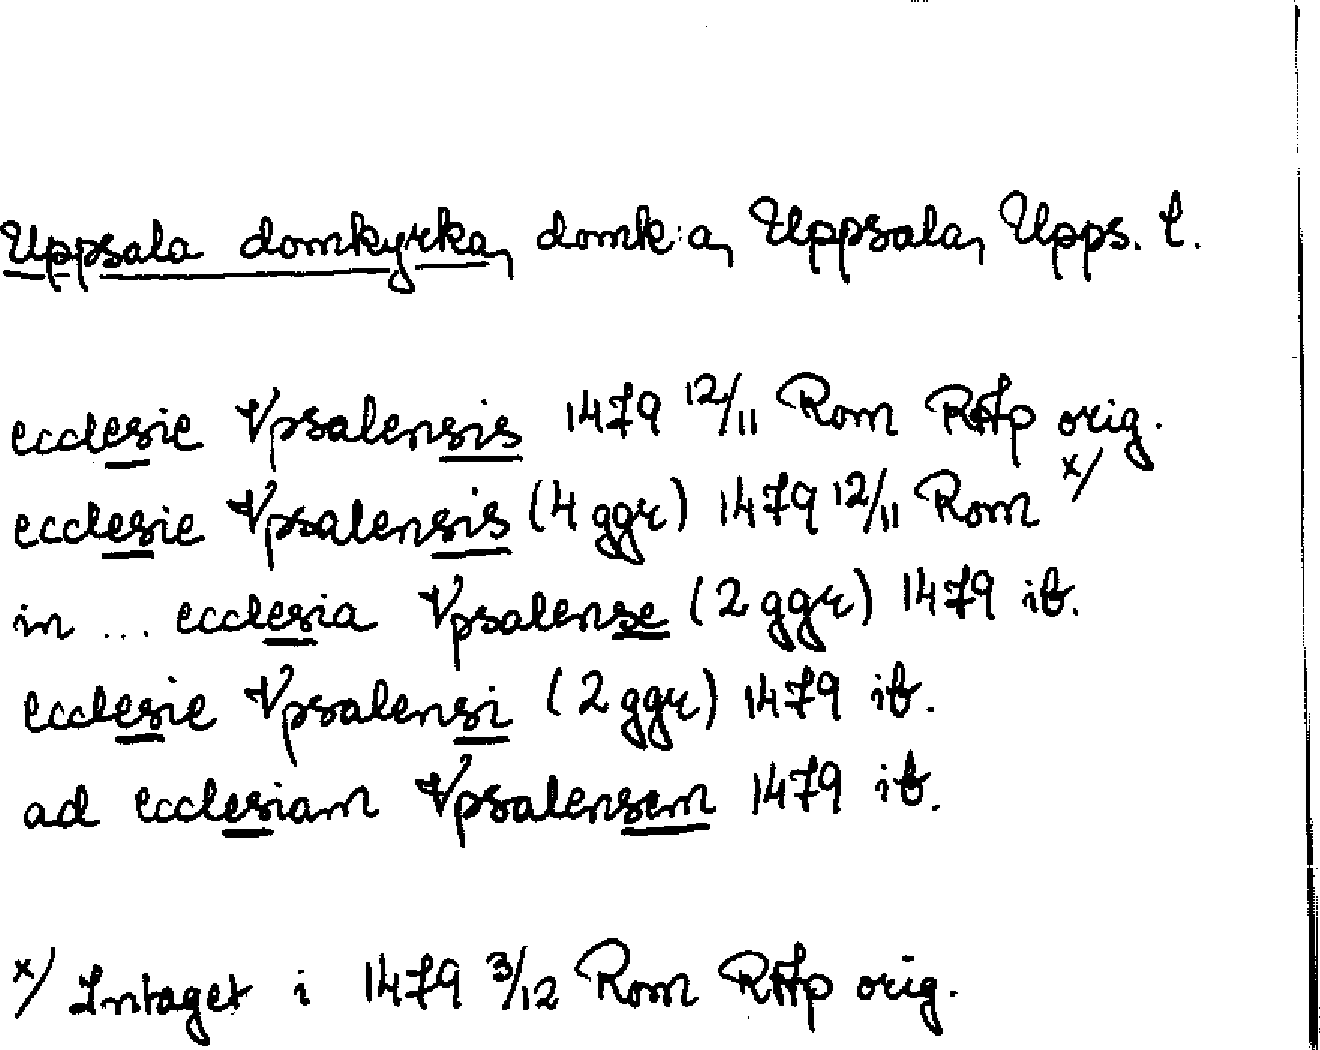 Uppsala domkyrka, domk:a, Uppsala, Upps. l.
ecclesie Vpsalensis 1479 12/11 Rom RAp orig.
ecclesie Vpsalensis (4 ggr) 1479 12/11 Rom x/
in ... ecclesia Vpsalense (2 ggr) 1479 ib.
ecclesie Vpsalensi (2 ggr) 1479 ib.
ad ecclesiam Vpsalensem 1479 ib.
x/ Intaget i 1479 3/12 Rom RAp orig.